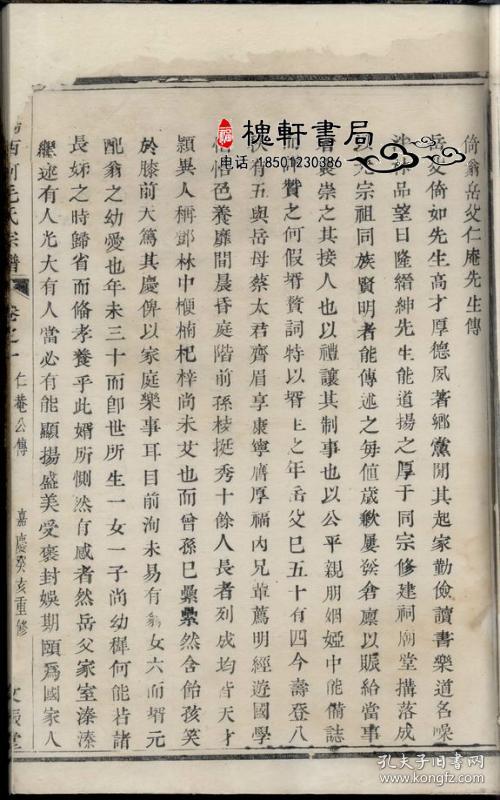 倚翁岳父仁庵先生傳
岳父倚如先生高才厚德夙著鄉黨聞其起家勤儉讀書樂道名噪
品望日隆縉紳先生能道揚之厚于同宗修建祠廟堂搆落成
宗祖同族賢明者能傳述之每值歲歉屢發倉廪以賑給當事
崇之其接人也以禮讓其制事也以公平親朋姻婭中能備誌
贊之何假壻贅詞特以壻上之年岳父巳五十有四今壽登八
有五與岳母蔡太君齊眉享康寧膺厚福內兄輩薦明經遊國學
色養靡間晨昏庭階前孫枝挺秀十餘人長者列成均皆天才
穎異人稱鄧林中楩楠杞梓尚未艾也而曾孫巳纍纍然含飴孩笑
於膝前大篤其慶俾以家庭樂事耳目前洵未易有翁女六而壻元
配翁之幼愛也年未三十而卽世所生一女一子尚幼穉何能若諸
長姊之時歸省而脩孝養乎此婿所惻然有感者然岳父家室溱溱
繼述有人光大有人當必有能顯揚盛美受褒封娛期頤爲國家人
西河毛氏宗譜
卷之一
仁菴公傳
嘉慶癸亥重修
槐軒書局
电话 18501230386
孔夫子旧书网
www.kongfz.com